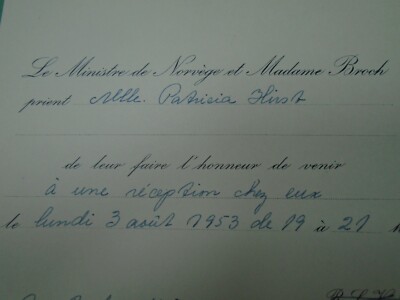 Le Ministre de Norvège et Madame Broch
prient Mlle. Patrisia Hirst
de leur faire l'honneur de venir
à une réception chez eux
le lundi 3 août 1953 de 19 à 21